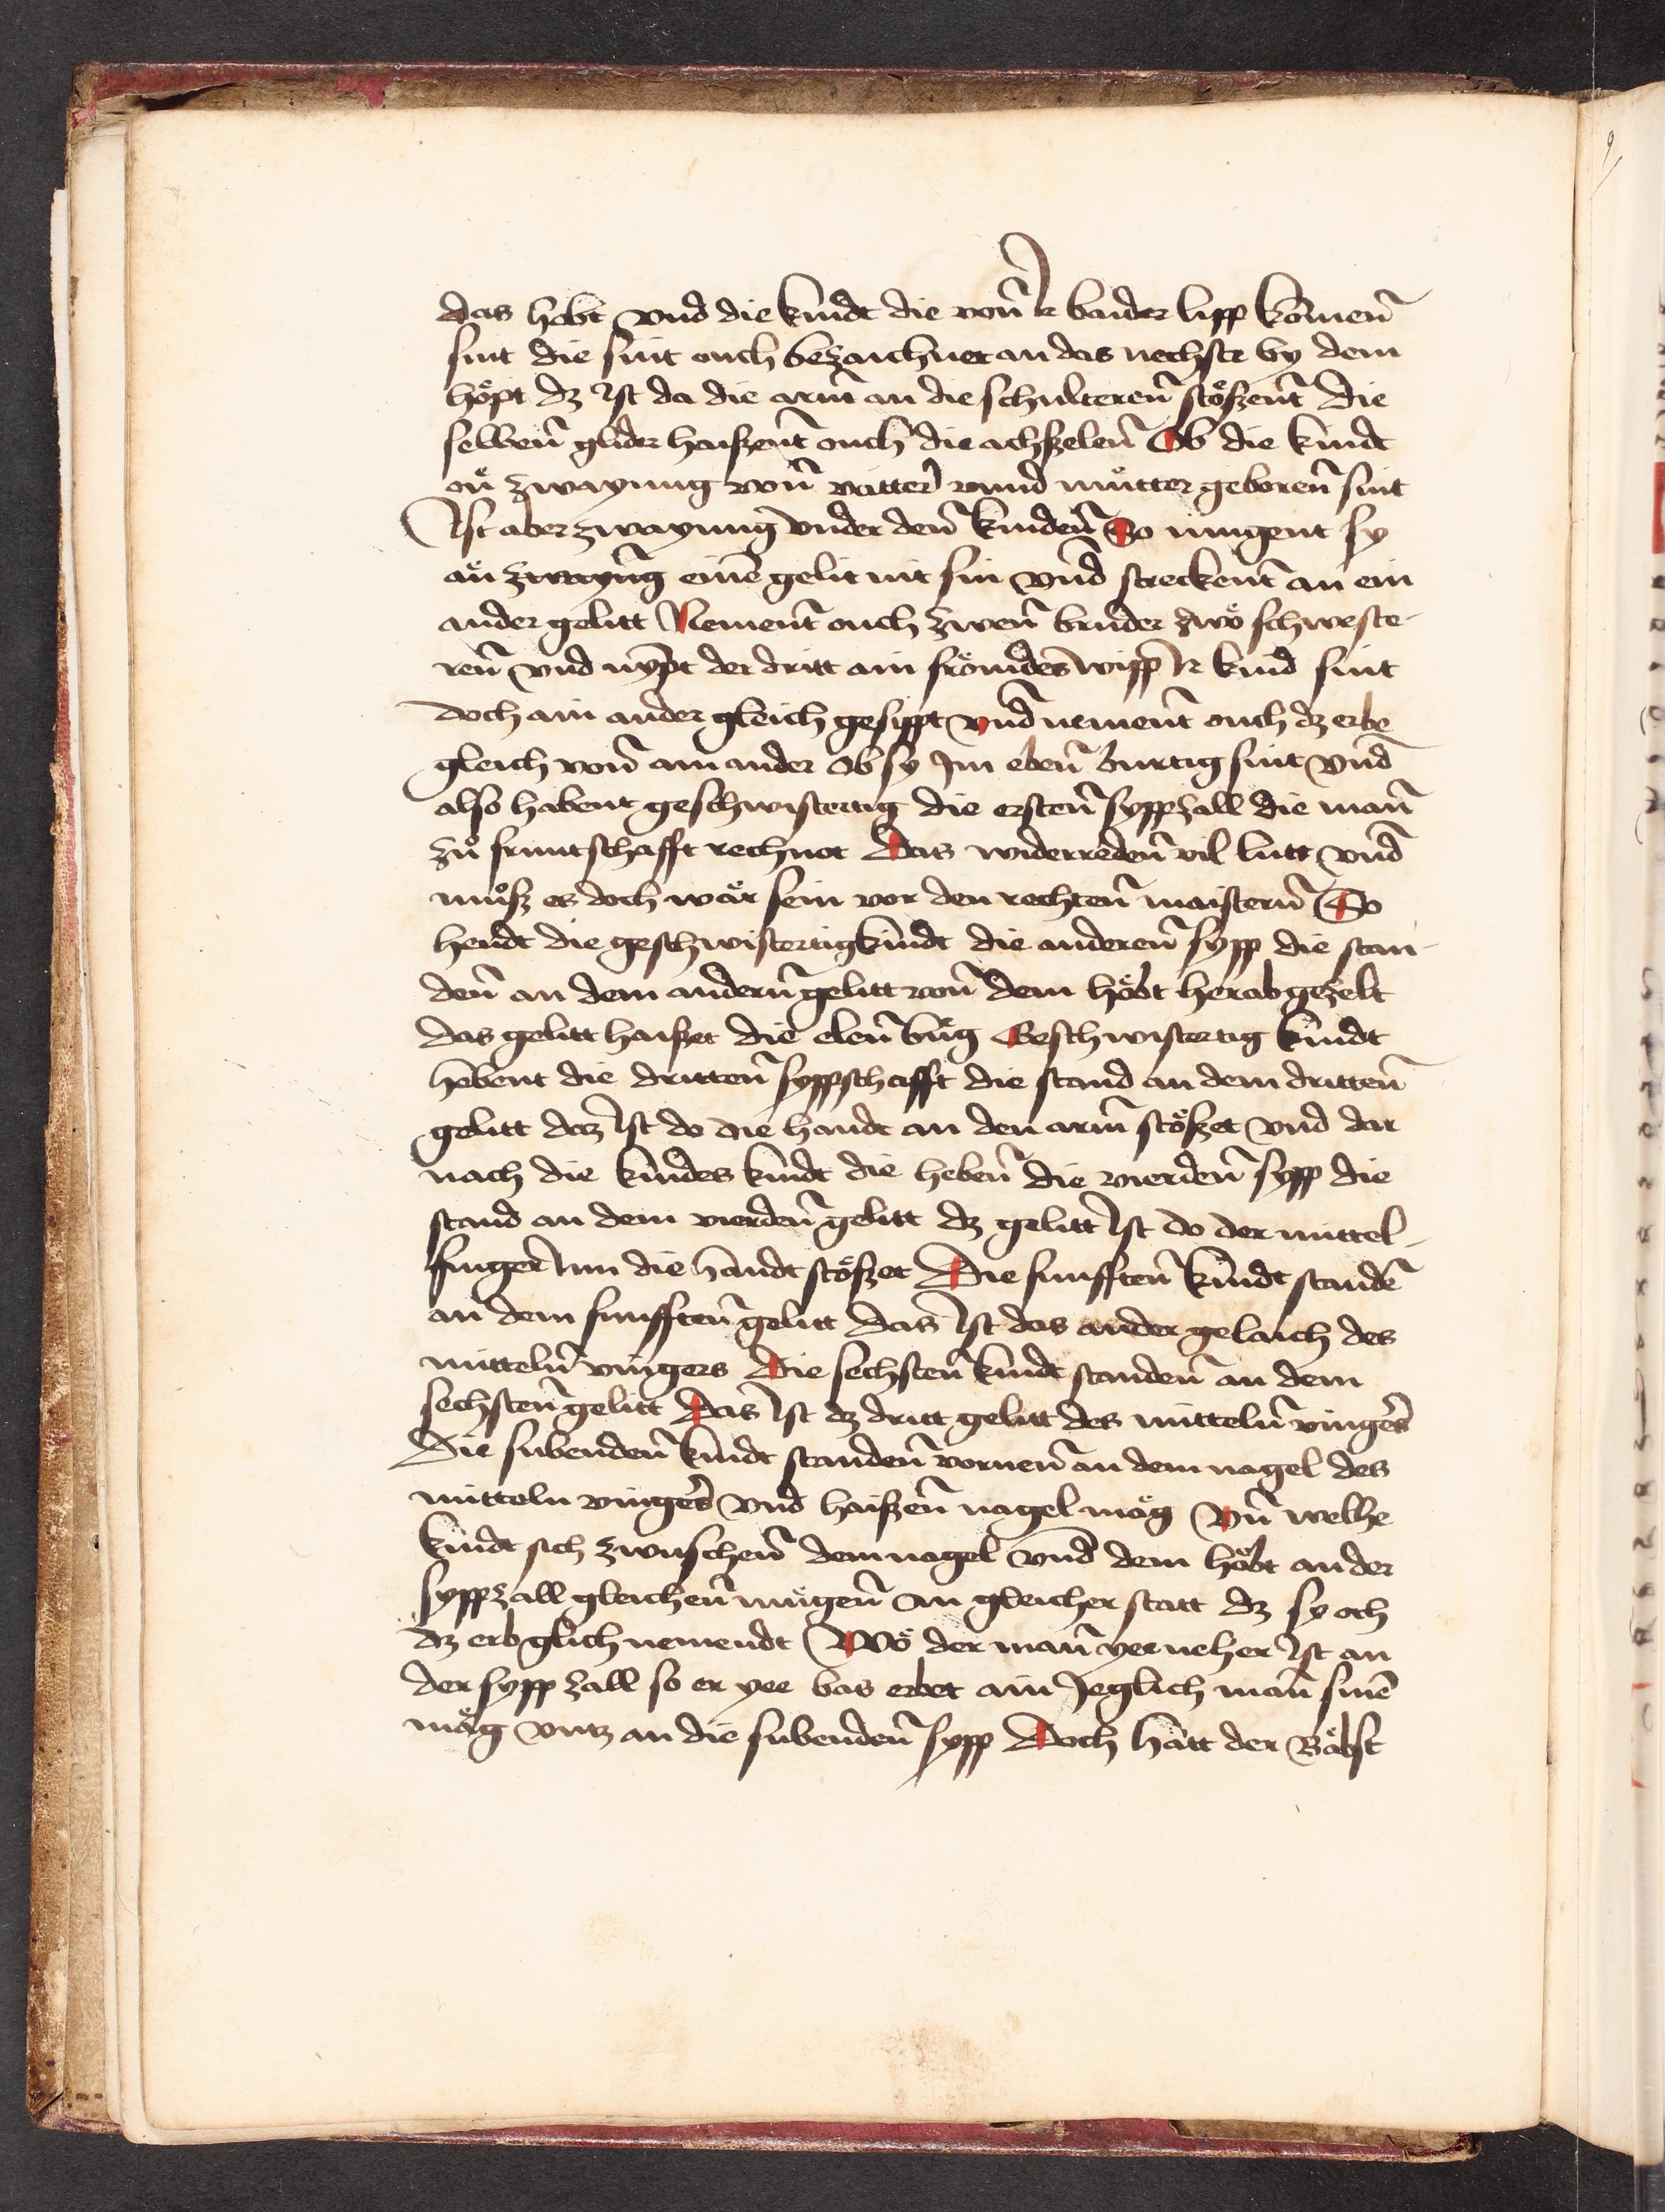 das hobt vnd die kindt die von̄ Ir baider lipp komen̄
sint die sint ouch bezaichnet an das nechste by dem
hoͤpt dz Ist da die arm̄ an die schulteren̄ stoͤszent̄ die
selben̄ glider haiszent̄ ouch die achszelen̄ Ob die kindt
on̄ zwayung von̄ vatter vnnd muͦtter geboren̄ sint
Ist aber zwayung vnder den̄ kinden̄ So mugent sy
aͤn zwayūg einē gelit nit sin vnd streckent̄ an ein
ander gelitt Nement̄ ouch zwen̄ bruder zwoͤ schweste-
ren̄ vnd nypt der dritt ain froͤmdes wipp Ir kind sint
doch ain ander gleich gesippt vnd nement̄ ouch dz erbe
gleich von̄ ain ander Ob sy Im eben̄ burtig sint vnd
also habent geschwistertig die ersten̄ sypp zall die man̄
zuͦ fruntschafft rechnot Das widerreden̄ vil lutt vnd
muͦsz es doch waͤr sein vor den rechten̄ maistern̄ So
hendt die geschwistertigkindt die anderen̄ sypp die stan-
den̄ an dem andern̄ gelitt von̄ dem hoͤbt herab gezelt
das gelitt haiszet die elen̄ buͤg Geschwistertig kindt
hebent die dritten̄ syppschafft die stand an dem dritten̄
gelitt daz Ist do die handt an den arm̄ stoͤszet vnd dar
nach die kindes kindt die heben̄ die vierden̄ sypp die
stand an dem vierden̄ gelitt dz gelitt Ist do der mittel-
finger Inn die handt stoͤszet Die funfften̄ kindt standē
an dem funfften̄ gelitt das Ist das ander gelaich des
mitteln̄ vingers Die sechsten̄ kindt standen̄ an dem
sechsten̄ gelitt Das Ist dz dritt gelitt des mitteln̄ vingers
Die subenden̄ kindt standen̄ vornen̄ an dem nagel des
mitteln vingers vnd haiszen̄ nagel moͤg Vn̄ welhe
kindt sich zwuschen̄ dem nagel vnd dem hoͤbt an der
syppzall gleichen̄ muͤgen̄ an gleicher statt dz sy och
dz erb glich nemendt Woͤ der man̄ yee neher Ist an
der sypp zall so er yee bas erbet ain Jeglich man̄ sinē
maͤg vntz an die subenden̄ sypp Doch hatt der Baͤbst